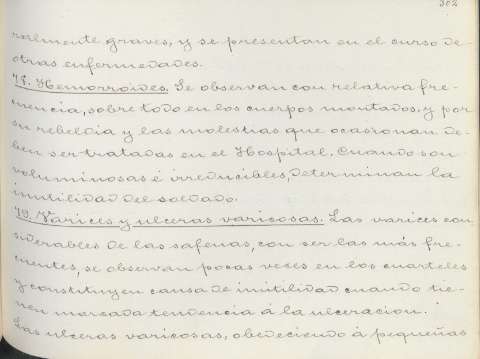 302
ralmente graves, y se presentan en el curso de
otras enfermedades.
78. Hemorroides. Se observan con relativa fre-
cuencia, sobre todo en los cuerpos montados, y por
su rebeldia y las molestias que ocasionan de-
ben ser tratadas en el Hospital. Cuando son
voluminosas é irreducibles, determinan la
inutilidad del soldado.
79. Varices y ulceras varicosas. Las varices con
siderables de las safenas, con ser las más fre-
cuentes, se observan pocas veces en los cuarteles
y constituyen causa de inutilidad cuando tie-
nen marcada tendencia á la ulceracion.
Las ulceras varicosas, obedeciendo á pequeñas